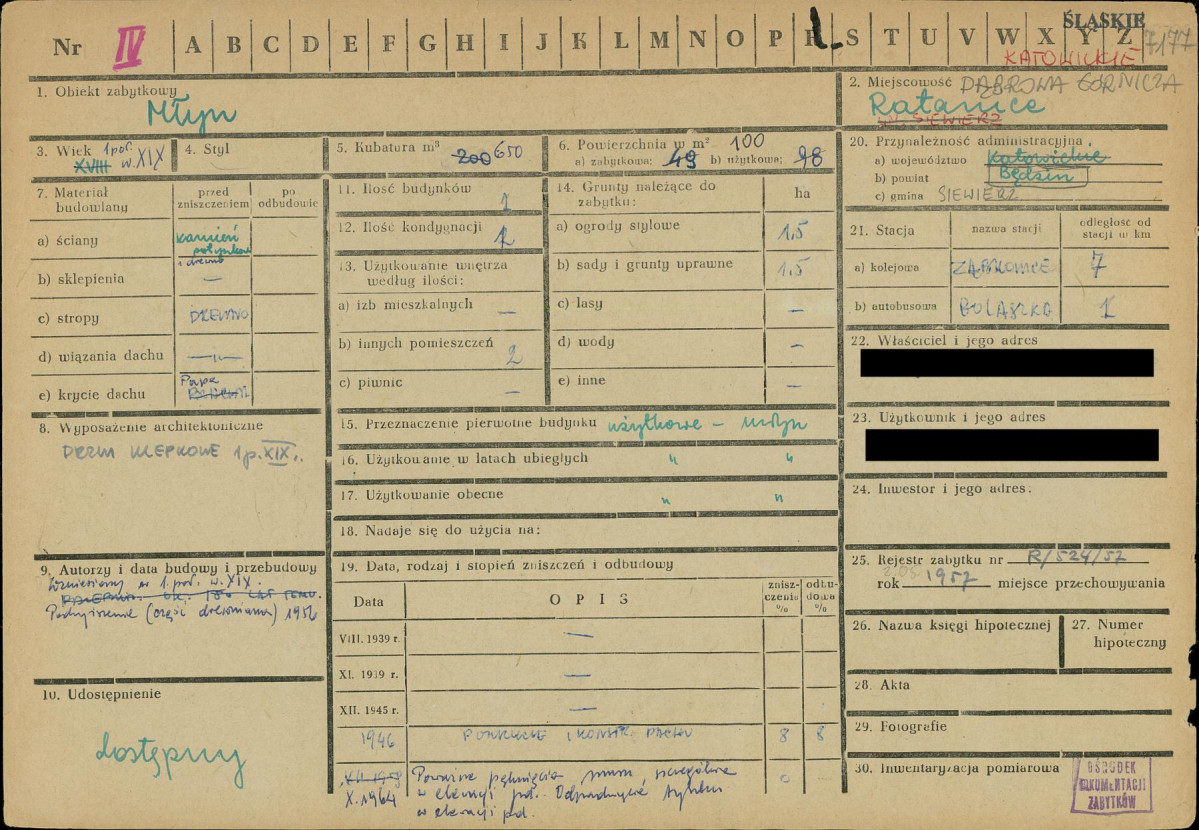 Nr IV A B C D E F G H I J K L M N O P R S T U V W X Y Z
ŚLĄSKIE
7177
KATOWICKIE
1. Obiekt zabytkowy
Młyn
2. Miejscowość DĄBROWA GÓRNICZA
Ratanice
SIEWIERZ
3. Wiek 1 poł.
XVIII w. XIX
4. Styl
5. Kubatura m³
200 650
6. Powierzchnia w m² 100
a) zabytkowa: 49 b) użytkowa: 98
7. Materiał budowlany
przed zniszczeniem
po odbudowie
a) ściany kamień
i drewno
b) sklepienia —
c) stropy DREWNO
d) wiązania dachu —„—
e) krycie dachu Papa
8. Wyposażenie architektoniczne
DRZWI KLEPKOWE 1 p. XIX.
9. Autorzy i data budowy i przebudowy
Wzniesiony w 1. poł. w. XIX.
OK. 180 LAT TEMU.
(część drewniana) 1956
10. Udostępnienie
dostępny
11. Ilość budynków 1
12. Ilość kondygnacji
13. Użytkowanie wnętrza według ilości:
a) izb mieszkalnych —
b) innych pomieszczeń 2
c) piwnic —
14. Grunty należące do zabytku: ha
a) ogrody stylowe 1,5
b) sady i grunty uprawne 1.5
c) lasy —
d) wody —
e) inne —
15. Przeznaczenie pierwotne budynku użytkowe – młyn
16. Użytkowanie w latach ubiegłych „ „
17. Użytkowanie obecne „ „
18. Nadaje się do użycia na:
19. Data, rodzaj i stopień zniszczeń i odbudowy
Data OPIS zniszczenia % odbudowa %
VIII. 1939 r. —
XI. 1939 r. —
XII. 1945 r. —
1946 POKRYCIE I KONSTR. DACHU 8 8
X. 1964 Poważne pęknięcia muru, szczególnie
w elewacji pd. Odpadnięcie tynku
w elewacji pd.
20. Przynależność administracyjna
a) województwo katowickie
b) powiat Będzin
c) gmina SIEWIERZ
21. Stacja nazwa stacji odległość od stacji w km
a) kolejowa ZĄBKOWICE 7
b) autobusowa GOLASZKA 1
22. Właściciel i jego adres
23. Użytkownik i jego adres
24. Inwestor i jego adres:
25. Rejestr zabytku nr R/524/57
rok 1957 miejsce przechowywania
26. Nazwa księgi hipotecznej
27. Numer hipoteczny
28. Akta
29. Fotografie
30. Inwentaryzacja pomiarowa
OŚRODEK
DOKUMENTACJI
ZABYTKÓW